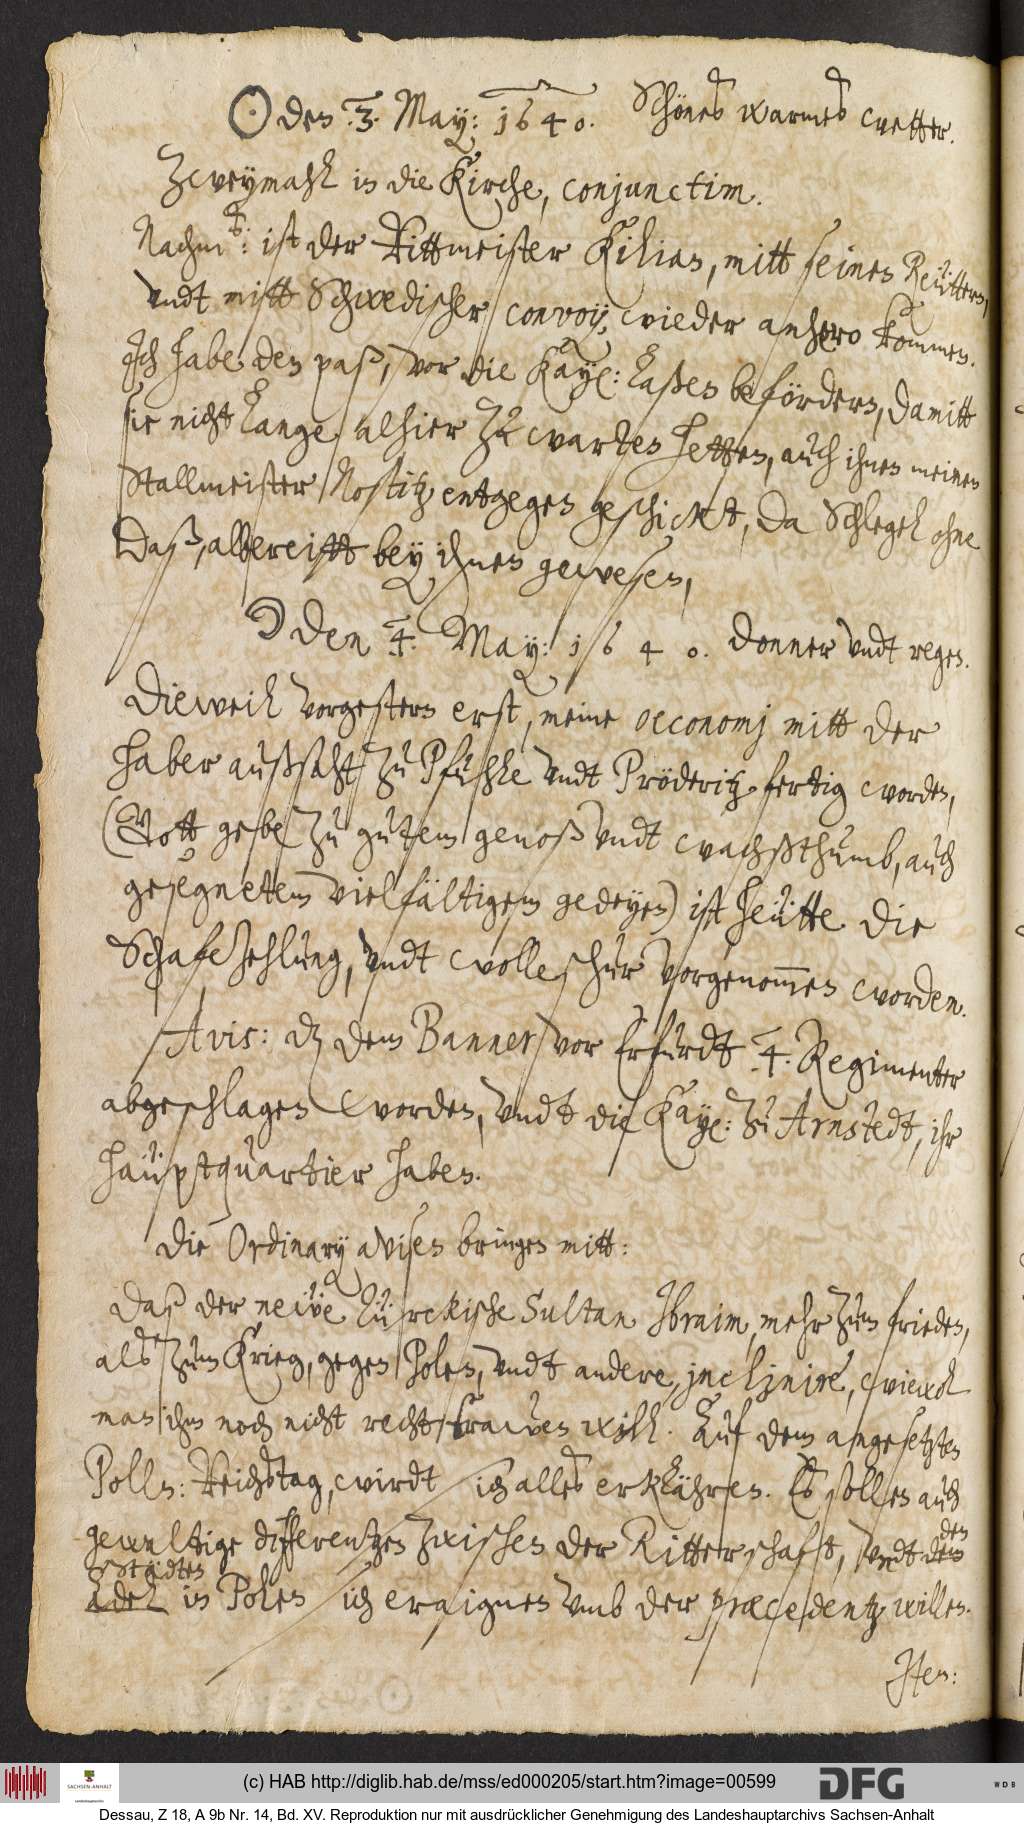 ☉ den .3. May: 1640. Schönes warmes wetter.
Zweymahl in die Kirche, conjunctim.
Nachm: ist der Rittmeister Kilian, mitt seinen Reüttern,
vndt mitt Schwedischer convoy, wieder anhero kommen.
Ich habe den paß, vor die Kayl: laßen befördern, damitt
sie nicht lange alhier zu warten hetten, auch ihnen meinen
Stallmeister Nostitz entgegen geschickt, da Schlegel ohne
daß, allbereitt bey ihnen gewesen,
☽ den 4. May: 1640. Donner vndt regen.
Dieweil vorgestern erst, meine oeconomj mitt der
haber außsaht zu Pfuhle vndt Pröderitz fertig worden,
(Gott gebe zu gutem genoß vndt wachßthumb, auch
gesegnetem vielfältigem gedeyen) ist heütte die
Schafe zehlung, vndt wolle schur vorgenommen worden.
Avis: dz dem Banner vor Erfurdt .4. Regimenter
abgeschlagen worden, vndt die Kayl: zu Arnstedt, ihr
haüptquartier haben.
Die Ordinarij avisen bringen mitt:
Daß der neüe Türckische Sultan Ibraim, mehr zum frieden,
als zum Krieg, gegen Polen, vndt andere, jnclinire, wiewol
man ihm noch nicht recht trawen will. Auf dem angesetzten
Polln: Reichstag, wirdt sich alles erklähren. Es sollen auch
gewaltige differentzen zwischen der Ritterschafft, vndt dem
den
Städten
Adel in Polen sich eraignen vmb der præcedentz willen.
Iten:
(c) HAB http://diglib.hab.de/mss/ed000205/start.htm?image=00599
SACHSEN-ANHALT
DFG
WDB
Dessau, Z 18, A 9b Nr. 14, Bd. XV. Reproduktion nur mit ausdrücklicher Genehmigung des Landeshauptarchivs Sachsen-Anhalt